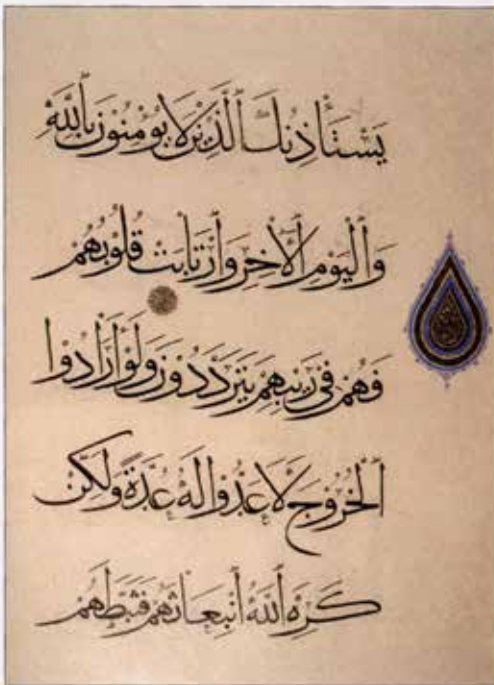 يَسْتَأْذِنُكَ الَّذِينَ لَا يُؤْمِنُونَ بِاللَّهِ
وَالْيَوْمِ الْآخِرِ وَارْتَابَتْ قُلُوبُهُمْ
فَهُمْ فِي رَيْبِهِمْ يَتَرَدَّدُونَ وَلَوْ أَرَادُوا
الْخُرُوجَ لَأَعَدُّوا لَهُ عُدَّةً وَلَكِنْ
كَرِهَ اللَّهُ انْبِعَاثَهُمْ فَثَبَّطَهُمْ